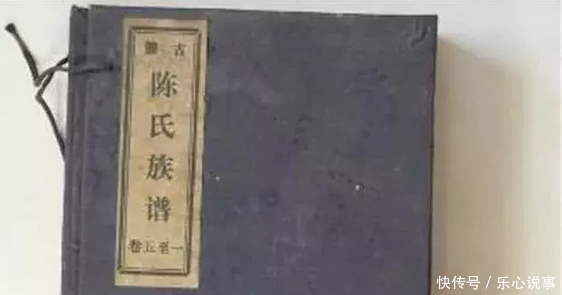 古
陈氏族谱
一至五卷
快传号 / 乐心说事